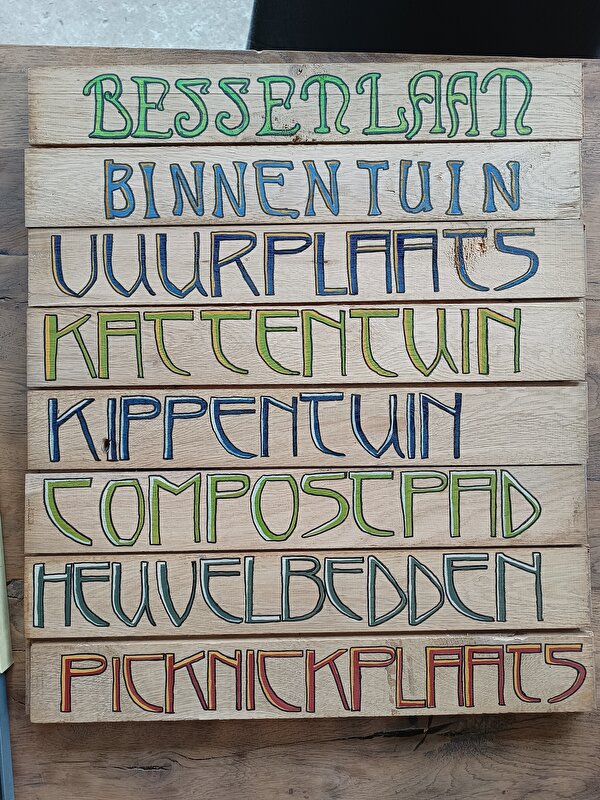 BESSENLAAN
BINNENTUIN
VUURPLAATS
KATTENTUIN
KIPPENTUIN
COMPOSTPAD
HEUVELBEDDEN
PICKNICKPLAATS